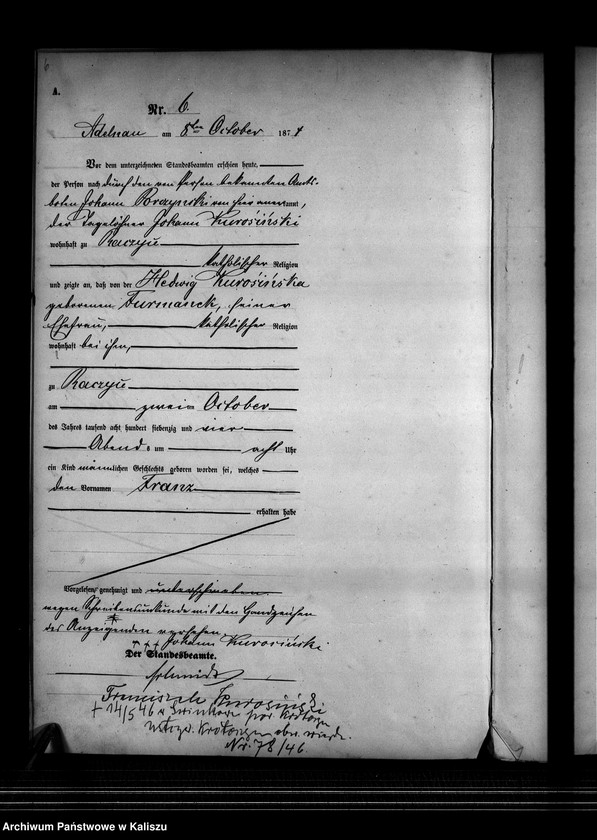 6
A.
Nr. 6.
Adelnau am 8ten October 1874
Vor dem unterzeichneten Standesbeamten erschien heute,
der Person nach durch den von Person bekannten Amts-
boten Johann von hier anerkannt,
der Tagelöhner Johann Kurosiński
wohnhaft zu Raczyce
katholischer Religion
und zeigte an, daß von der Hedwig Kurosińska
geborenen Furmanek, seiner
Ehefrau, katholischer Religion
wohnhaft bei ihm,
zu Raczyce
am zwei October
des Jahres tausend acht hundert siebenzig und vier
Abends um acht Uhr
ein Kind männlichen Geschlechts geboren worden sei, welches
den Vornamen Franz
erhalten habe
Vorgelesen, genehmigt und unterschrieben
wegen Schreibensunkunde mit den Handzeichen
des Anzeigenden versehen.
+++ Johann Kurosiński
Der Standesbeamte.
Schmidt
Franciszek Kurosiński
+ 14/5 46 w pow Krotoszyn
Krotoszyn
Nr. 78/46
Archiwum Państwowe w Kaliszu